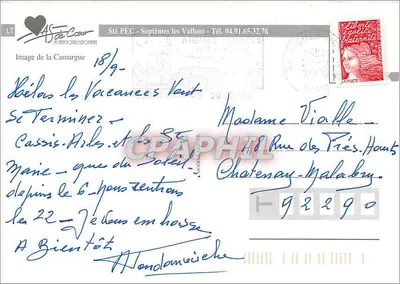 LT
As de Cœur
Sté PEC - Septèmes les Vallons - Tél. 04.91.65.32.76
Image de la Camargue
18/9-
Hélas les Vacances Vont
se Terminer -
Cassis - Arles et les Stes
Marie - que du Soleil
depuis le 6 - nous rentrons
les 22 - Je vous embrasse
A Bientôt
Madame Vialle
48 Rue des Prés-Hauts
Chatenay-Malabry
92290
liberté
égalité
fraternité
LA POSTE
CPARAMA